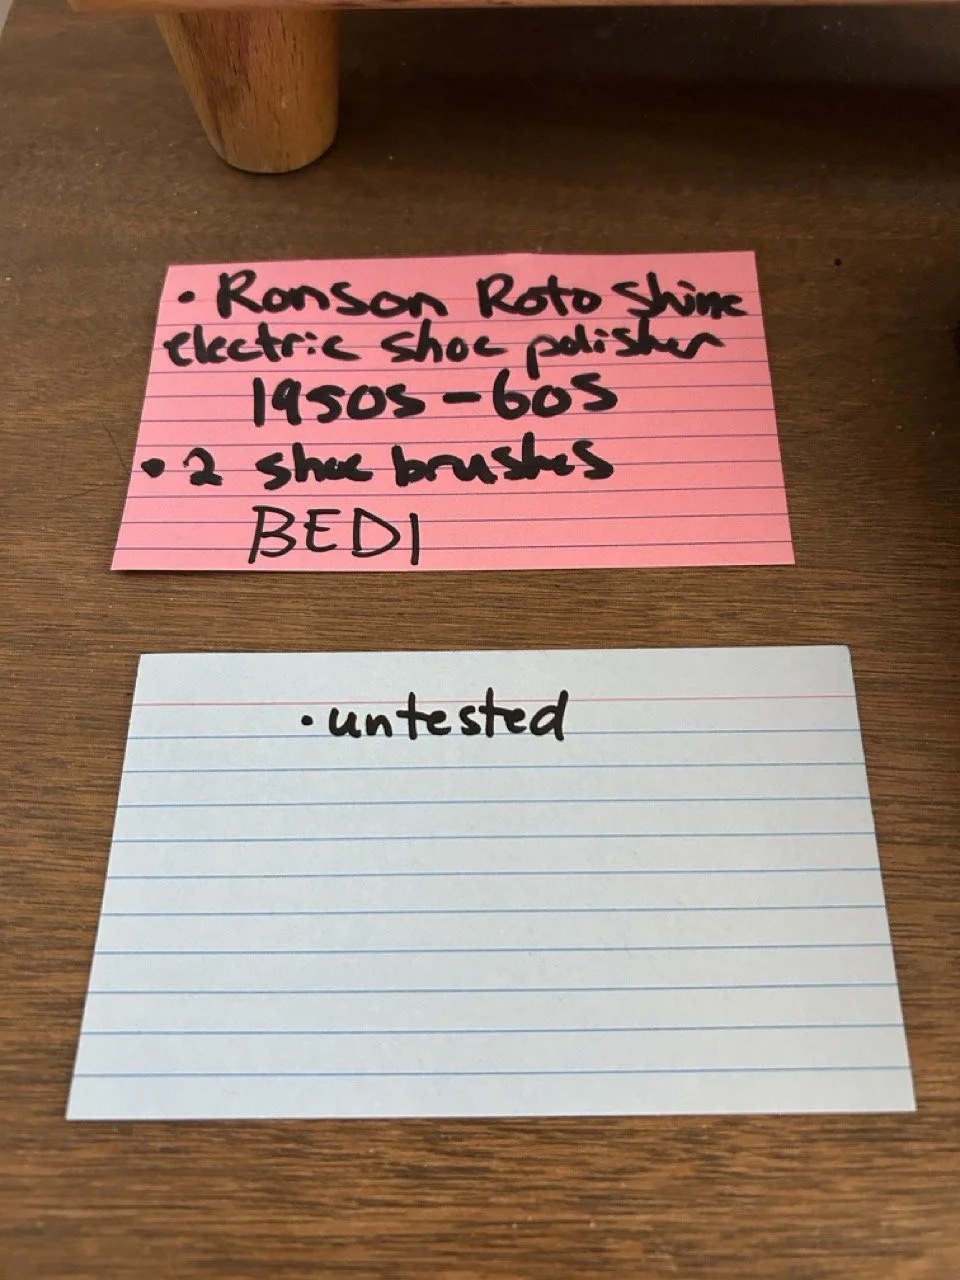 • Ronson Roto Shine
electric shoe polisher
1950s - 60s
• 2 shoe brushes
BEDI
• untested